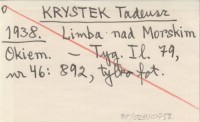 KRYSTEK Tadeusz
1938. Limba nad Morskim
Okiem. — Tyg. Il. 79,
nr 46: 892, tylko fot.